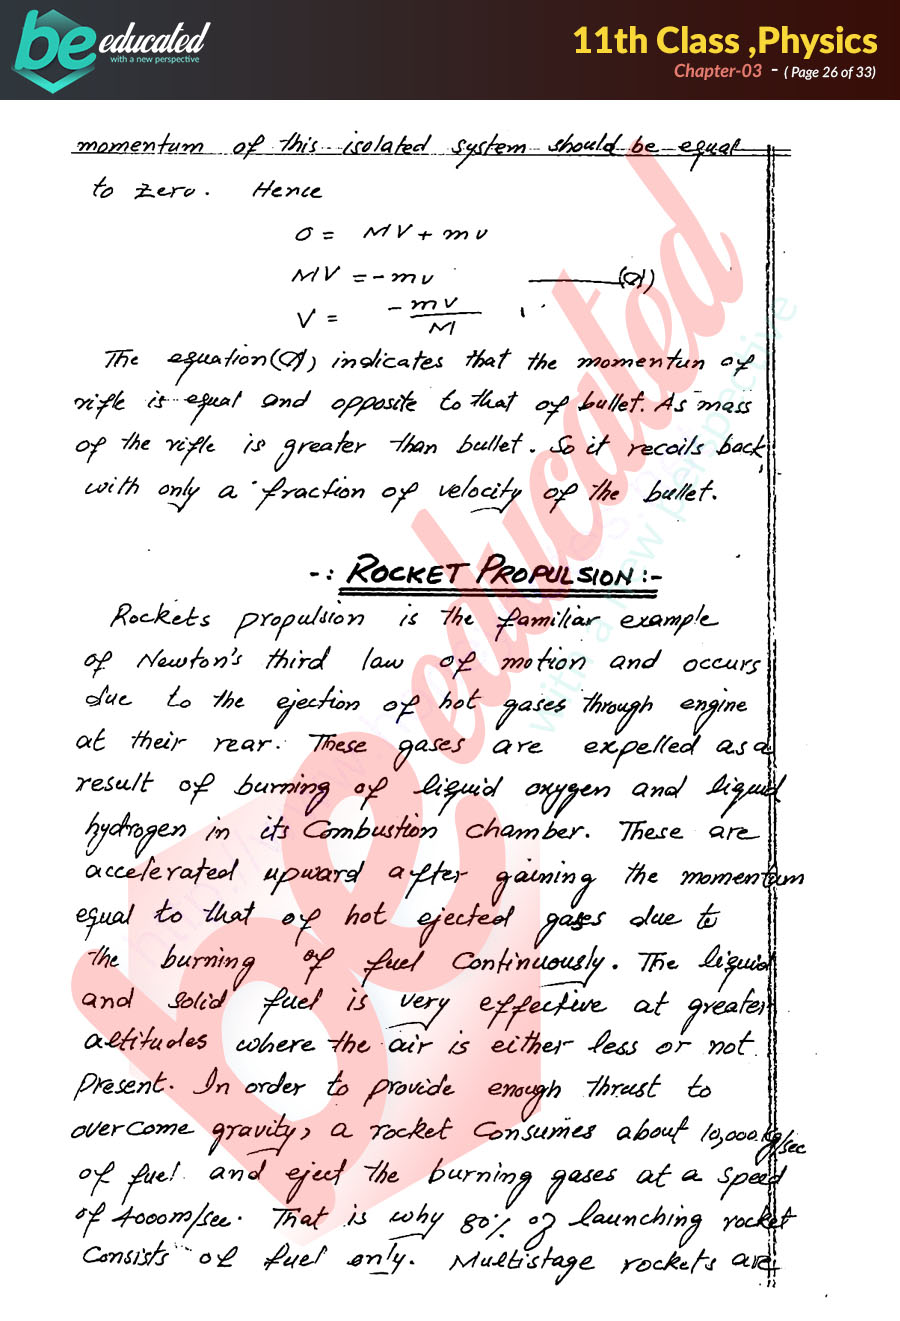 be educated
with a new perspective
11th Class ,Physics
Chapter-03 - ( Page 26 of 33)
momentum of this isolated system should be equal
to zero. Hence
0 = MV + mv
MV = - mv
V = - mv / M
The equation indicates that the momentun of
rifle is equal and opposite to that of bullet. As mass
of the rifle is greater than bullet. So it recoils back
with only a fraction of velocity of the bullet.
-: ROCKET PROPULSION :-
Rockets propulsion is the familiar example
of Newton's third law of motion and occurs
due to the ejection of hot gases through engine
at their rear. These gases are expelled as a
result of burning of liquid oxygen and liquid
hydrogen in its Combustion chamber. These are
accelerated upward after gaining the momentum
equal to that of hot ejected gases due to
the burning of fuel continuously. The liquid
and solid fuel is very effective at greater
altitudes where the air is either less or not
Present. In order to provide enough thrust to
overcome gravity, a rocket consumes about 10,000 kg/sec
of fuel and eject the burning gases at a speed
of 4000m/sec. That is why 80% of launching rocket
Consists of fuel only. Multistage rockets are
be educated
with a new perspective